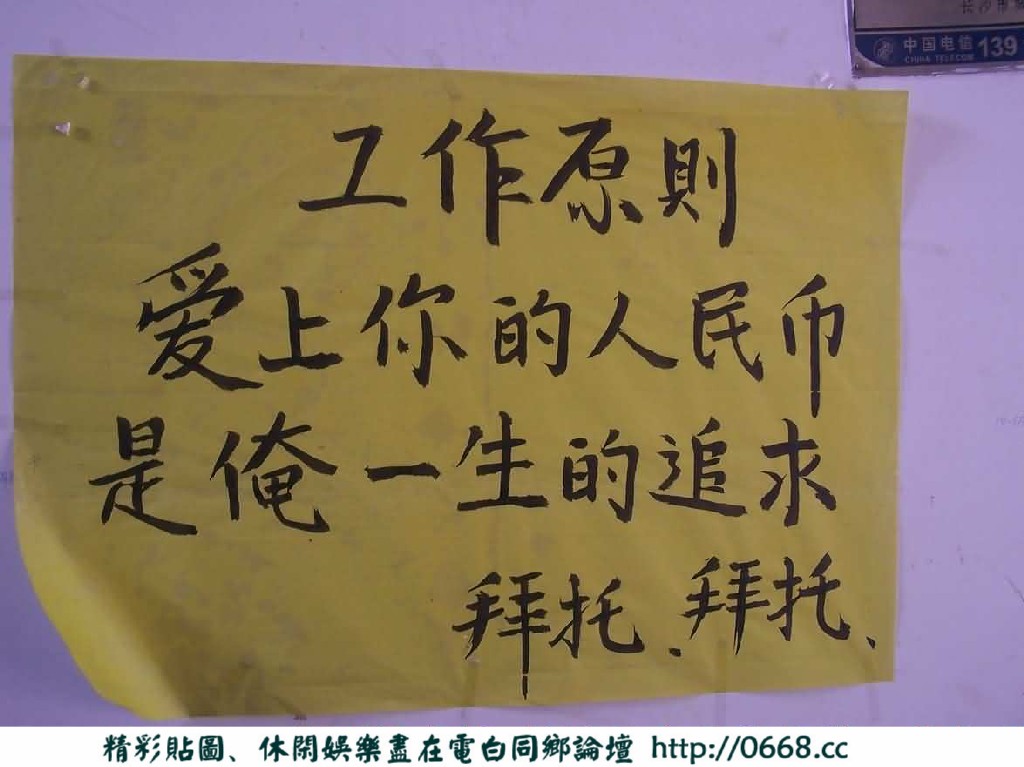 长沙市
中国电信 139
CHINA TELECOM
工作原則
爱上你的人民币
是俺一生的追求
拜托.拜托、
精彩貼圖、休閑娛樂盡在電白同鄉論壇 http://0668.cc